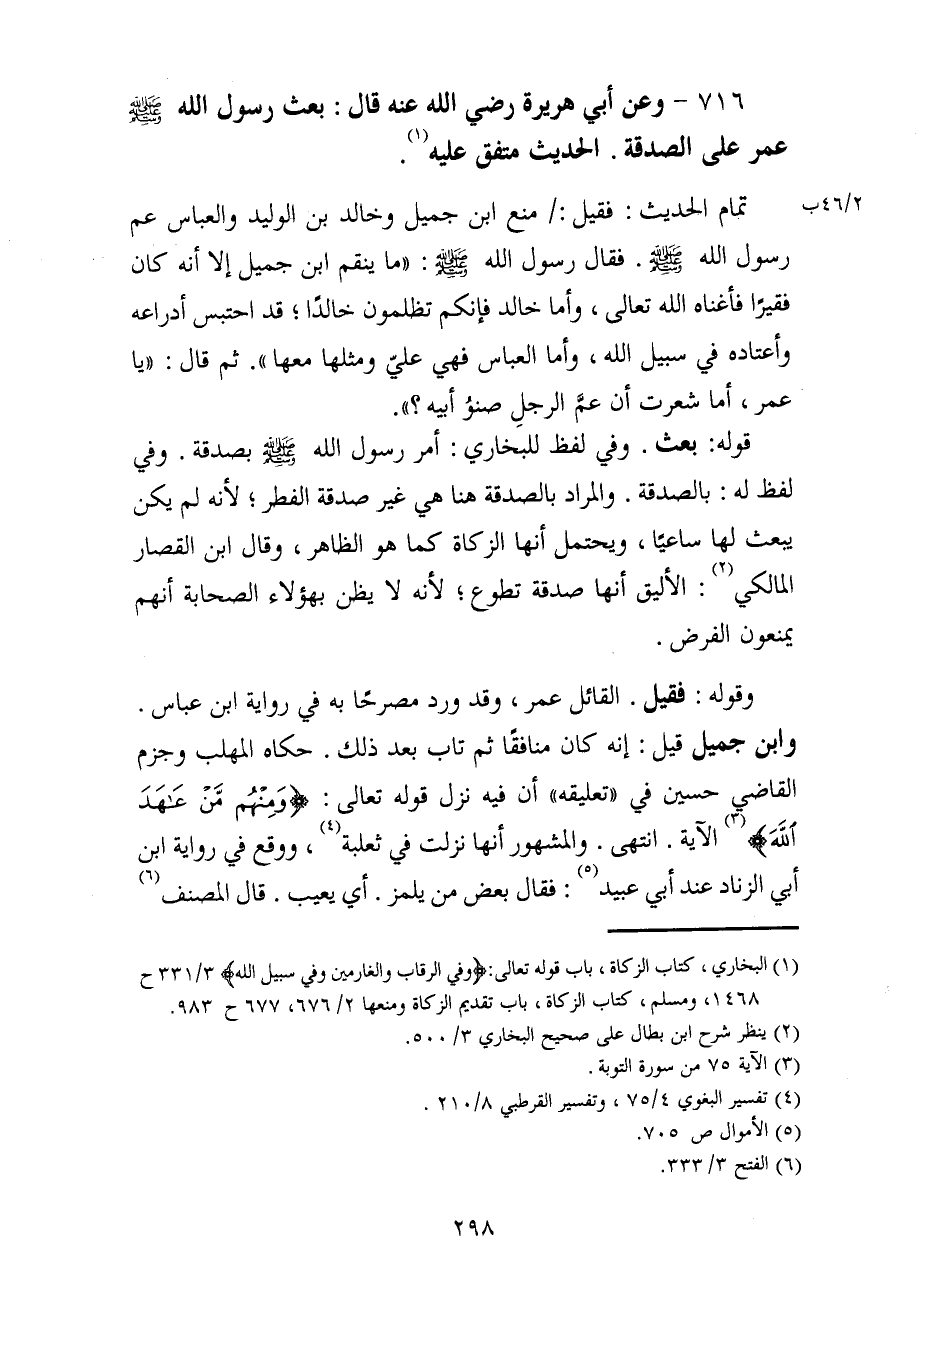 ٧١٦ - وعن أبي هريرة رضي الله عنه قال : بعث رسول الله ﷺ
عمر على الصدقة . الحديث متفق عليه(١).
٤٦/٢ب
تمام الحديث : فقيل :/ منع ابن جميل وخالد بن الوليد والعباس عم
رسول الله ﷺ . فقال رسول الله ﷺ : «ما ينقم ابن جميل إلا أنه كان
فقيرًا فأغناه الله تعالى ، وأما خالد فإنكم تظلمون خالدًا ؛ قد احتبس أدراعه
وأعتاده في سبيل الله ، وأما العباس فهي عليّ ومثلها معها». ثم قال : «يا
عمر ، أما شعرت أن عمَّ الرجلِ صنوُ أبيه ؟».
قوله: بعث . وفي لفظ للبخاري : أمر رسول الله ﷺ بصدقة . وفي
لفظ له : بالصدقة . والمراد بالصدقة هنا هي غير صدقة الفطر ؛ لأنه لم يكن
يبعث لها ساعيًا ، ويحتمل أنها الزكاة كما هو الظاهر ، وقال ابن القصار
المالكي(٢) : الأليق أنها صدقة تطوع ؛ لأنه لا يظن بهؤلاء الصحابة أنهم
يمنعون الفرض .
وقوله : فقيل . القائل عمر ، وقد ورد مصرحًا به في رواية ابن عباس .
وابن جميل قيل : إنه كان منافقًا ثم تاب بعد ذلك . حكاه المهلب وجزم
القاضي حسين في «تعليقه» أن فيه نزل قوله تعالى : ﴿وَمِنْهُم مَّنْ عَـٰهَدَ
ٱللَّهَ﴾(٣) الآية . انتهى . والمشهور أنها نزلت في ثعلبة(٤) ، ووقع في رواية ابن
أبي الزناد عند أبي عبيد(٥) : فقال بعض من يلمز . أي يعيب . قال المصنف(٦)
(١) البخاري ، كتاب الزكاة ، باب قوله تعالى: ﴿وفي الرقاب والغارمين وفي سبيل الله﴾ ٣٣١/٣ ح
١٤٦٨، ومسلم ، كتاب الزكاة ، باب تقديم الزكاة ومنعها ٢/ ٦٧٦، ٦٧٧ ح ٩٨٣.
(٢) ينظر شرح ابن بطال على صحيح البخاري ٣/ ٥٠٠.
(٣) الآية ٧٥ من سورة التوبة .
(٤) تفسير البغوي ٧٥/٤ ، وتفسير القرطبي ٢١٠/٨ .
(٥) الأموال ص ٧٠٥.
(٦) الفتح ٣/ ٣٣٣.
٢٩٨